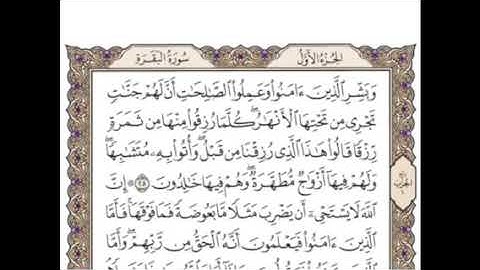 الجزء الأول
سورة البقرة
وَبَشِّرِ ٱلَّذِينَ ءَامَنُوا۟ وَعَمِلُوا۟ ٱلصَّٰلِحَٰتِ أَنَّ لَهُمْ جَنَّٰتٍ
تَجْرِى مِن تَحْتِهَا ٱلْأَنْهَٰرُ ۖ كُلَّمَا رُزِقُوا۟ مِنْهَا مِن ثَمَرَةٍ
رِّزْقًا قَالُوا۟ هَٰذَا ٱلَّذِى رُزِقْنَا مِن قَبْلُ ۖ وَأُتُوا۟ بِهِۦ مُتَشَٰبِهًا ۖ
وَلَهُمْ فِيهَآ أَزْوَٰجٌ مُّطَهَّرَةٌ ۖ وَهُمْ فِيهَا خَٰلِدُونَ ٢٥ ۞ إِنَّ
ٱللَّهَ لَا يَسْتَحْىِۦٓ أَن يَضْرِبَ مَثَلًا مَّا بَعُوضَةً فَمَا فَوْقَهَا ۚ فَأَمَّا
ٱلَّذِينَ ءَامَنُوا۟ فَيَعْلَمُونَ أَنَّهُ ٱلْحَقُّ مِن رَّبِّهِمْ ۖ وَأَمَّا